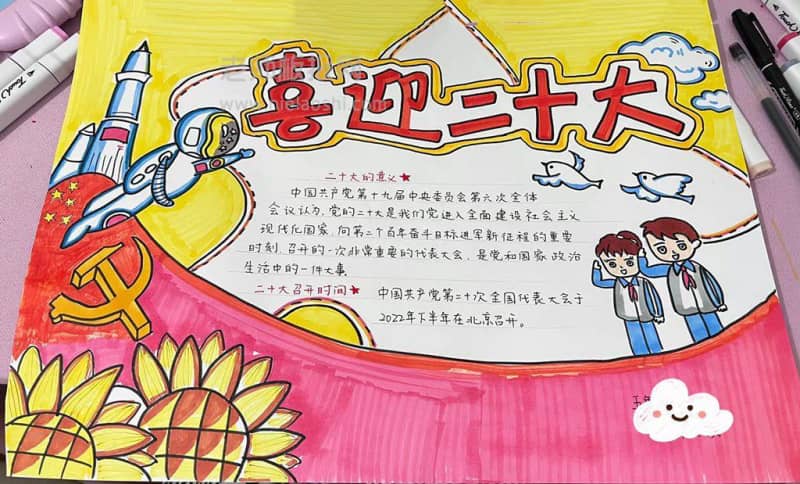 喜迎二十大
www.hielaoshi.com
二十大的意义★
中国共产党第十九届中央委员会第六次全体
会议认为,党的二十大是我们党进入全面建设社会主义
现代化国家、向第二个百年奋斗目标进军新征程的重要
时刻,召开的一次非常重要的代表大会,是党和国家政治
生活中的一件大事。
二十大召开时间★
中国共产党第二十次全国代表大会于
2022年下半年在北京召开。
Touch